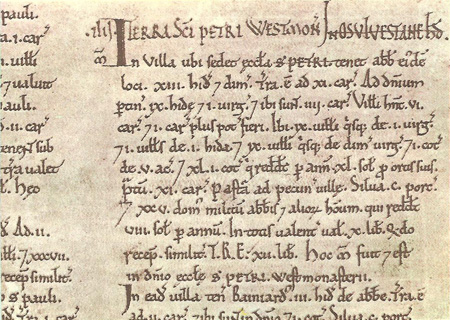 pauli.
a. i. car̃
i. uilli
⁊ ualuit
pauli.
ii. car̃
teneꞇ sub
tr̃a ualet
t. heo
Ad. ii.
itti. ⁊ xxxvii.
recep̃ similit̃.
o s̃ pauli.
t. ⁊ i. car̃
.iiij. TERRA SC̃I PETRI WESTMON̅. IN OSVLVESTANE HD̃.
m̃ In Villa ubi sedet eccl̃a s̃ PETRI. tenet abb̃ ei'dẽ
loci. xiii. hid̃ ⁊ dim̃. Tr̃a. ẽ ad xi. car̃. Ad dñium
ptiñ. ix. hidę ⁊ i. uirg̃. ⁊ ibi sunt. iiii. car̃. Uilli hñt. vi.
car̃. ⁊ i. car̃ plus pot̃ fieri. Ibi. ix. uilli q̃sq; de. i. uirg̃.
⁊ i. uill̃s de. i. hida. ⁊ ix. uilli q̃sq; de dim̃ uirg̃. ⁊ i. cot̃
de. v. ac̃. ⁊ xl. i. cot̃ q̃ redd̃t p̱ anñ. xl. sol̃ p̱ ortis suis.
p̃tũ. xi. car̃. p̱asta ad pecuñ uillę. Silua. c. porc̃.
⁊ xxv. dom̃ militũ abb̃is ⁊ alioꝝ hõum. qui redd̃t
viii. sol̃ p̱ annũ. In totis ualent̃ ual̃. x. lib̃. Q̃do
recep̃. similit̃. T.R.E. xii. lib̃. Hoc m̃ fuit ⁊ est
in dñio eccl̃ę s̃ PETRI. westmonasterii.
In ead̃ uilla teñ Bainiard'. iii. hid̃ de abb̃e. Tr̃a. ẽ
ad. ii. car̃. ⁊ ibi sunt in dñio. ⁊ i. cot̃. Silua. c. porc̃.